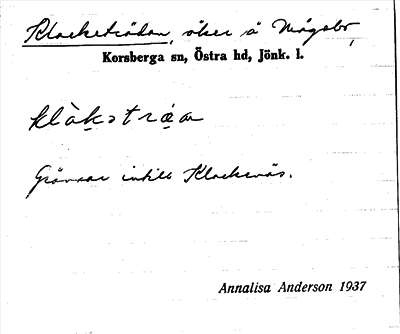 Klocketrädan, åker å Mågebo,
Korsberga sn, Östra hd, Jönk. l.
Gränsar intill Klockenäs.
Annalisa Anderson 1937